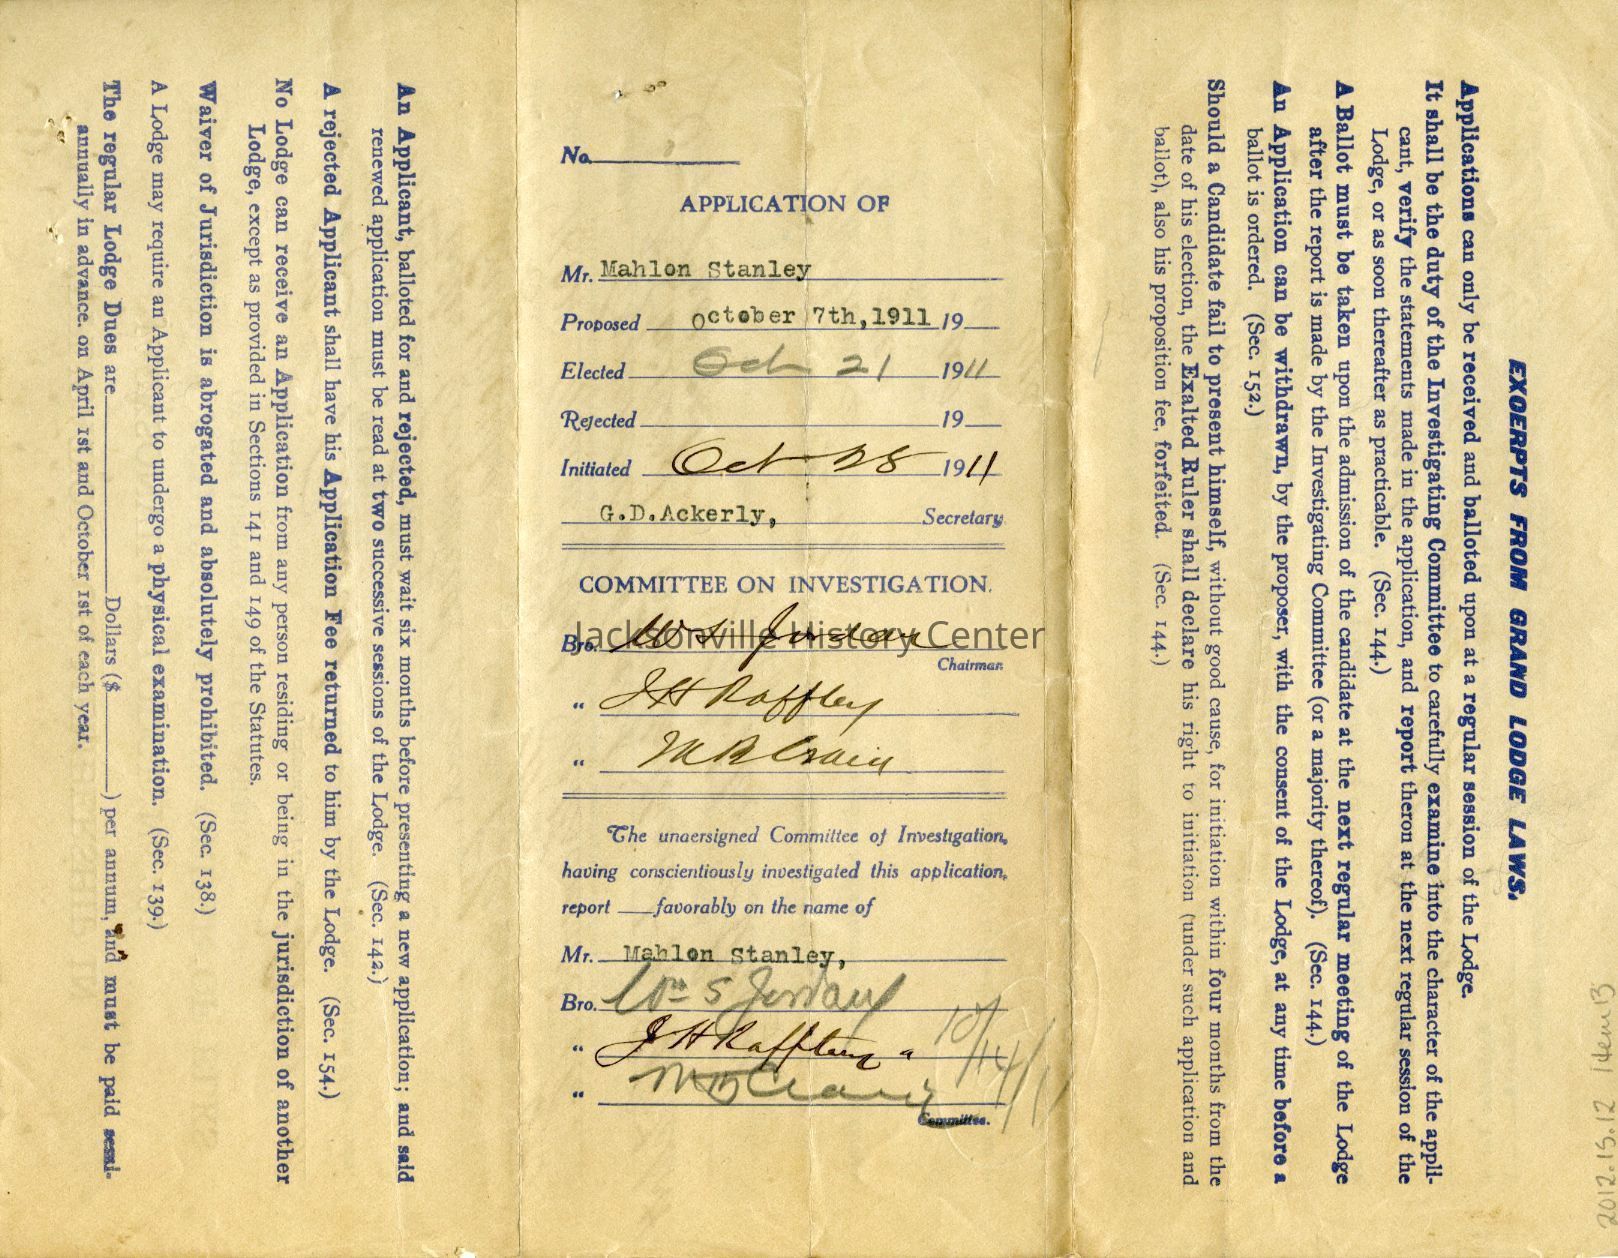 An Applicant, balloted for and rejected, must wait six months before presenting a new application; and said
renewed application must be read at two successive sessions of the Lodge. (Sec. 142.)
A rejected Applicant shall have his Application Fee returned to him by the Lodge. (Sec. 154.)
No Lodge can receive an Application from any person residing or being in the jurisdiction of another
Lodge, except as provided in Sections 141 and 149 of the Statutes.
Waiver of Jurisdiction is abrogated and absolutely prohibited. (Sec. 138.)
A Lodge may require an Applicant to undergo a physical examination. (Sec. 139.)
The regular Lodge Dues are Dollars ($ ) per annum, and must be paid semi-
annually in advance. on April 1st and October 1st of each year.
No.
APPLICATION OF
Mr. Mahlon Stanley
Proposed October 7th, 1911 19
Elected Oct 21 1911
Rejected 19
Initiated Oct 28 1911
G.D.Ackerly, Secretary
COMMITTEE ON INVESTIGATION.
Bro. Wm S Jordan
Jacksonville History Center
Chairman.
" J H Raffley
" M B Crain
The undersigned Committee of Investigation,
having conscientiously investigated this application,
report favorably on the name of
Mr. Mahlon Stanley,
Bro. Wm S Jordan
" J H Raffley
"
10/14/11
Committee.
EXCERPTS FROM GRAND LODGE LAWS.
Applications can only be received and balloted upon at a regular session of the Lodge.
It shall be the duty of the Investigating Committee to carefully examine into the character of the appli-
cant, verify the statements made in the application, and report theron at the next regular session of the
Lodge, or as soon thereafter as practicable. (Sec. 144.)
A Ballot must be taken upon the admission of the candidate at the next regular meeting of the Lodge
after the report is made by the Investigating Committee (or a majority thereof). (Sec. 144.)
An Application can be withdrawn, by the proposer, with the consent of the Lodge, at any time before a
ballot is ordered. (Sec. 152.)
Should a Candidate fail to present himself, without good cause, for initiation within four months from the
date of his election, the Exalted Ruler shall declare his right to initiation (under such application and
ballot), also his proposition fee, forfeited. (Sec. 144.)
2012.15.12 item 13